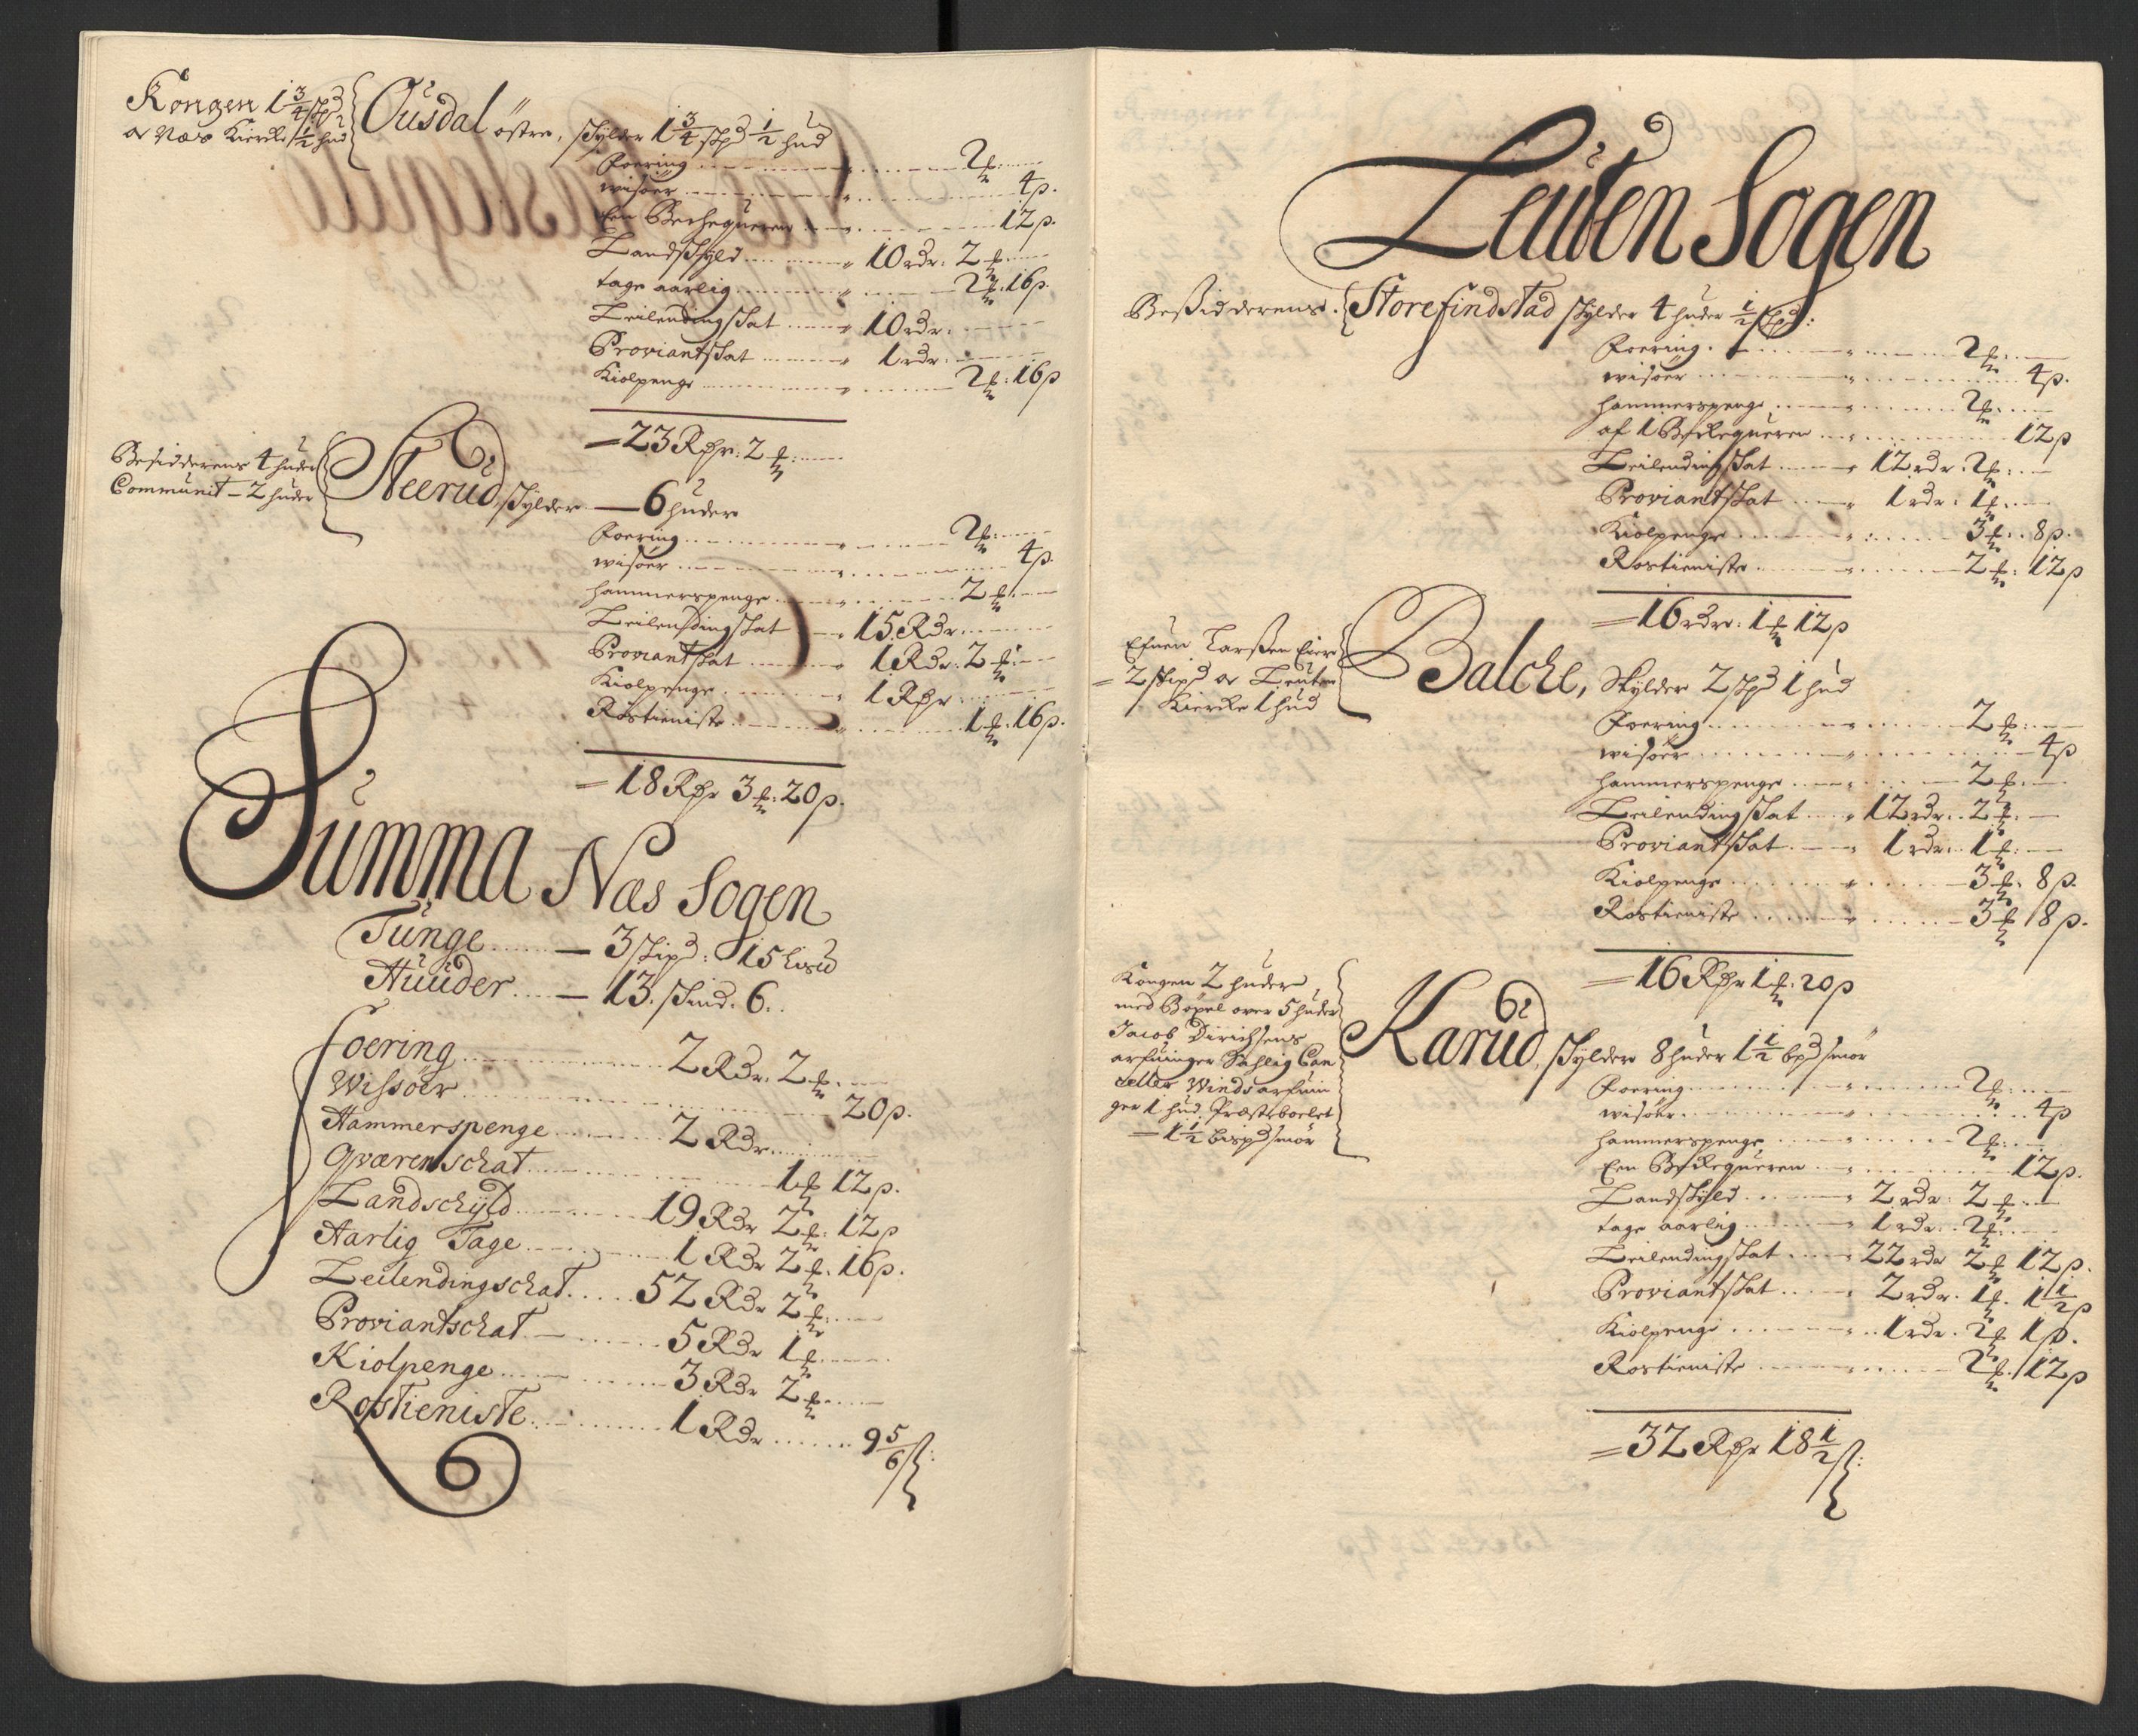 Kongen 1 3/4 skpd
oc Næs Kiercke 1/2 hud
Ousdal östre, skylder 1 3/4 skpd 1/2 hud
Foering 2 f
wisöer 4 ß
Een Bechequeren 12 ß
Landskyld 10 rdr. 2 f
tage aarlig 2 f. 16 ß
Leilendingskat 10 rdr.
Proviantskat 1 rdr.
Kiolpenge 2 f. 16 ß
= 23 Rdr. 2 f.
Besidderens 4 huder
Communit - 2 huder
Steerud, skylder - 6 huder
Foering 2 f.
wisöer 4 ß.
hammerspenge 2 f.
Leilendingskat 15 Rdr.
Proviantskat 1 Rdr. 2 f.
Kiolpenge 1 Rdr
Rostieniste 1 f. 16 ß.
= 18 Rdr 3 f. 20 ß.
Summa Næs Sogen
Tunge - 3 skipd: 15 Lispd
Huuder - 13. skind. 6.
Foering 2 Rdr. 2 f.
Wissöer 20 ß.
Hammerspenge 2 Rdr.
Qværenschat 1 f 12 ß.
Landschyld 19 Rdr 2 f. 12 ß
Aarlig Tage 1 Rdr 2 f. 16 ß.
Leilendingschat 52 Rdr 2 f.
Proviantschat 5 Rdr 1 f.
Kiolpenge 3 Rdr 2 f.
Rostieniste 1 Rdr 9 5/6 ß
Leuten Sogen
Besidderens. Storefindstad skylder 4 huder 1/2 skpd:
Foering. 2 f.
wisöer 4 ß.
hammerspenge 2 f.
af 1 Beckequeren 12 ß
Leilendingskat 12 rdr. 2 f.
Proviantskat 1 rdr. 1 f.
Kiolpenge 3 f. 8 ß.
Rostieniste 2 f. 12 ß
= 16 rdr. 1 f 12 ß
Efuen Larssen Eier
= 2 skipd oc Leuten
Kiercke 1 hud
Balche, Skylder 2 skpd 1 hud
Foering 2 f.
wisöer 4 ß
hammerspenge 2 f.
Leilendingskat 12 rdr. 2 f.
Proviantskat 1 rdr. 1 f.
Kiolpenge 3 f. 8 ß.
Rostieniste 3 f 8 ß.
= 16 Rdr 1 f. 20 ß
Kongen 2 huder
med Böxel over 5 huder
Jacob Dirichsens
arfuinger Sahlig Can
celler Winds arfuin
ger 1 hud. Præsteboelet
- 1 1/2 bispd smör
Karud, skylder 8 huder 1 1/2 bpd smör
Foering 2 f.
wisöer 4 ß
hammerspenge 2 f.
Een Beckequeren 12 ß.
Landskyld 2 rdr. 2 f.
tage aarlig 1 rdr. 2 f.
Leilendingskat 22 rdr 2 f 12 ß.
Proviantskat 2 rdr. 1 f. 1 1/2 ß
Kiolpenge 1 rdr. 2 f 1 ß.
Rostieniste 2 f. 12 ß
= 32 Rdr 18 1/2 ß